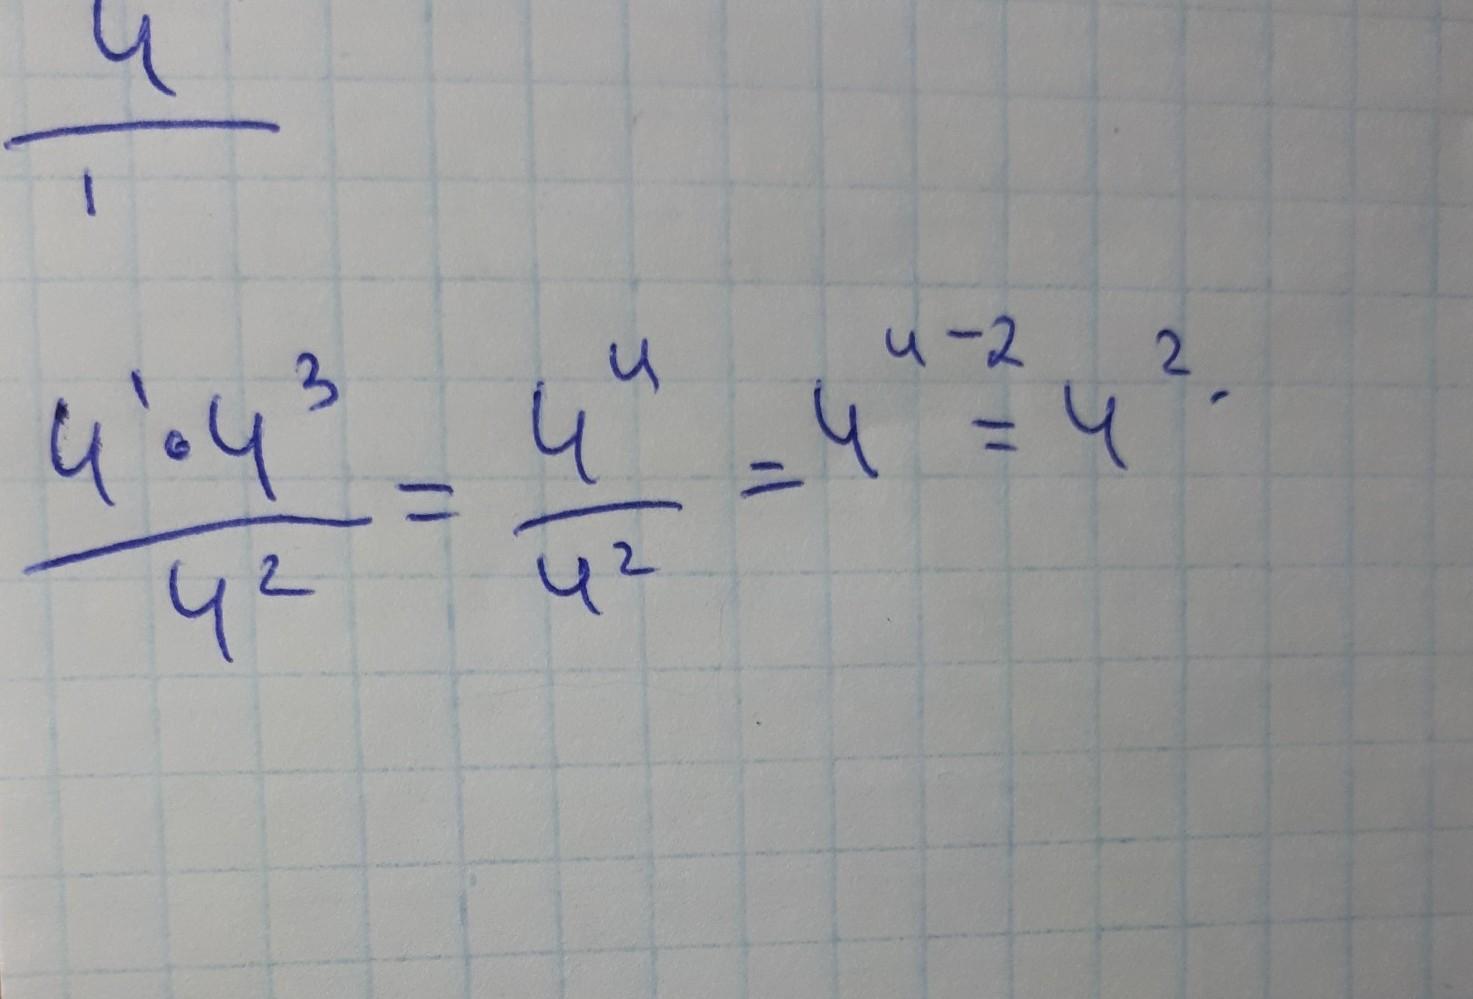 4
1
4¹ • 4³ / 4² = 4⁴ / 4² = 4⁴⁻² = 4².